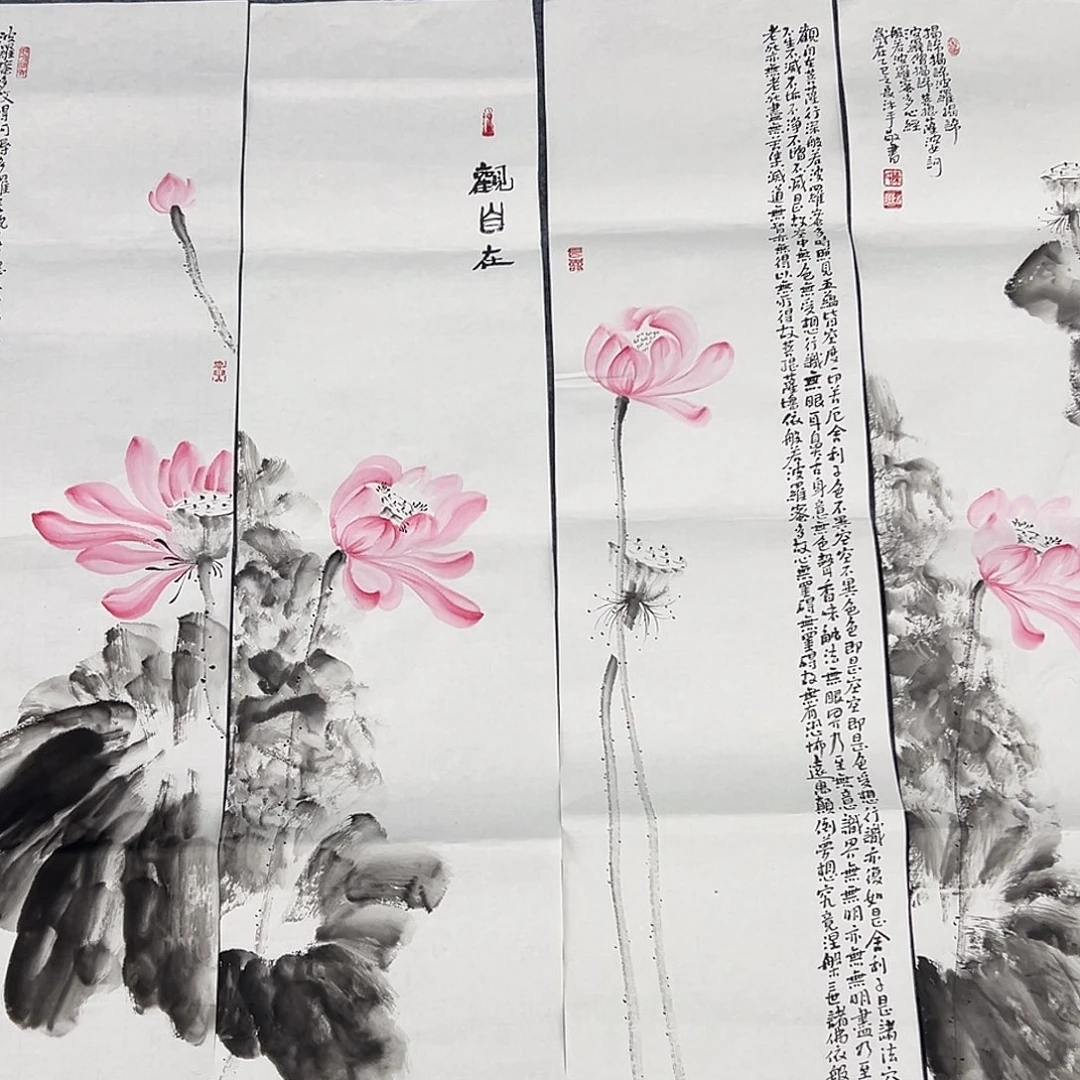 揭諦揭諦波羅揭諦
波羅僧揭諦菩提薩婆訶
般若波羅蜜多心經
歲在乙巳
手敬書
觀自在菩薩行深般若波羅蜜多時照見五蘊皆空度一切苦厄舍利子色不異空空不異色色即是空空即是色受想行識亦復如是舍利子是諸法空
不生不滅不垢不淨不增不減是故空中無色無受想行識無眼耳鼻舌身意無色聲香味觸法無眼界乃至無意識界無無明亦無無明盡乃至
老死亦無老死盡無苦集滅道無智亦無得以無所得故菩提薩埵依般若波羅蜜多故心無罣礙無罣礙故無有恐怖遠離顛倒夢想究竟涅槃三世諸佛依般
觀自在
波羅蜜多故得阿耨多羅三藐三